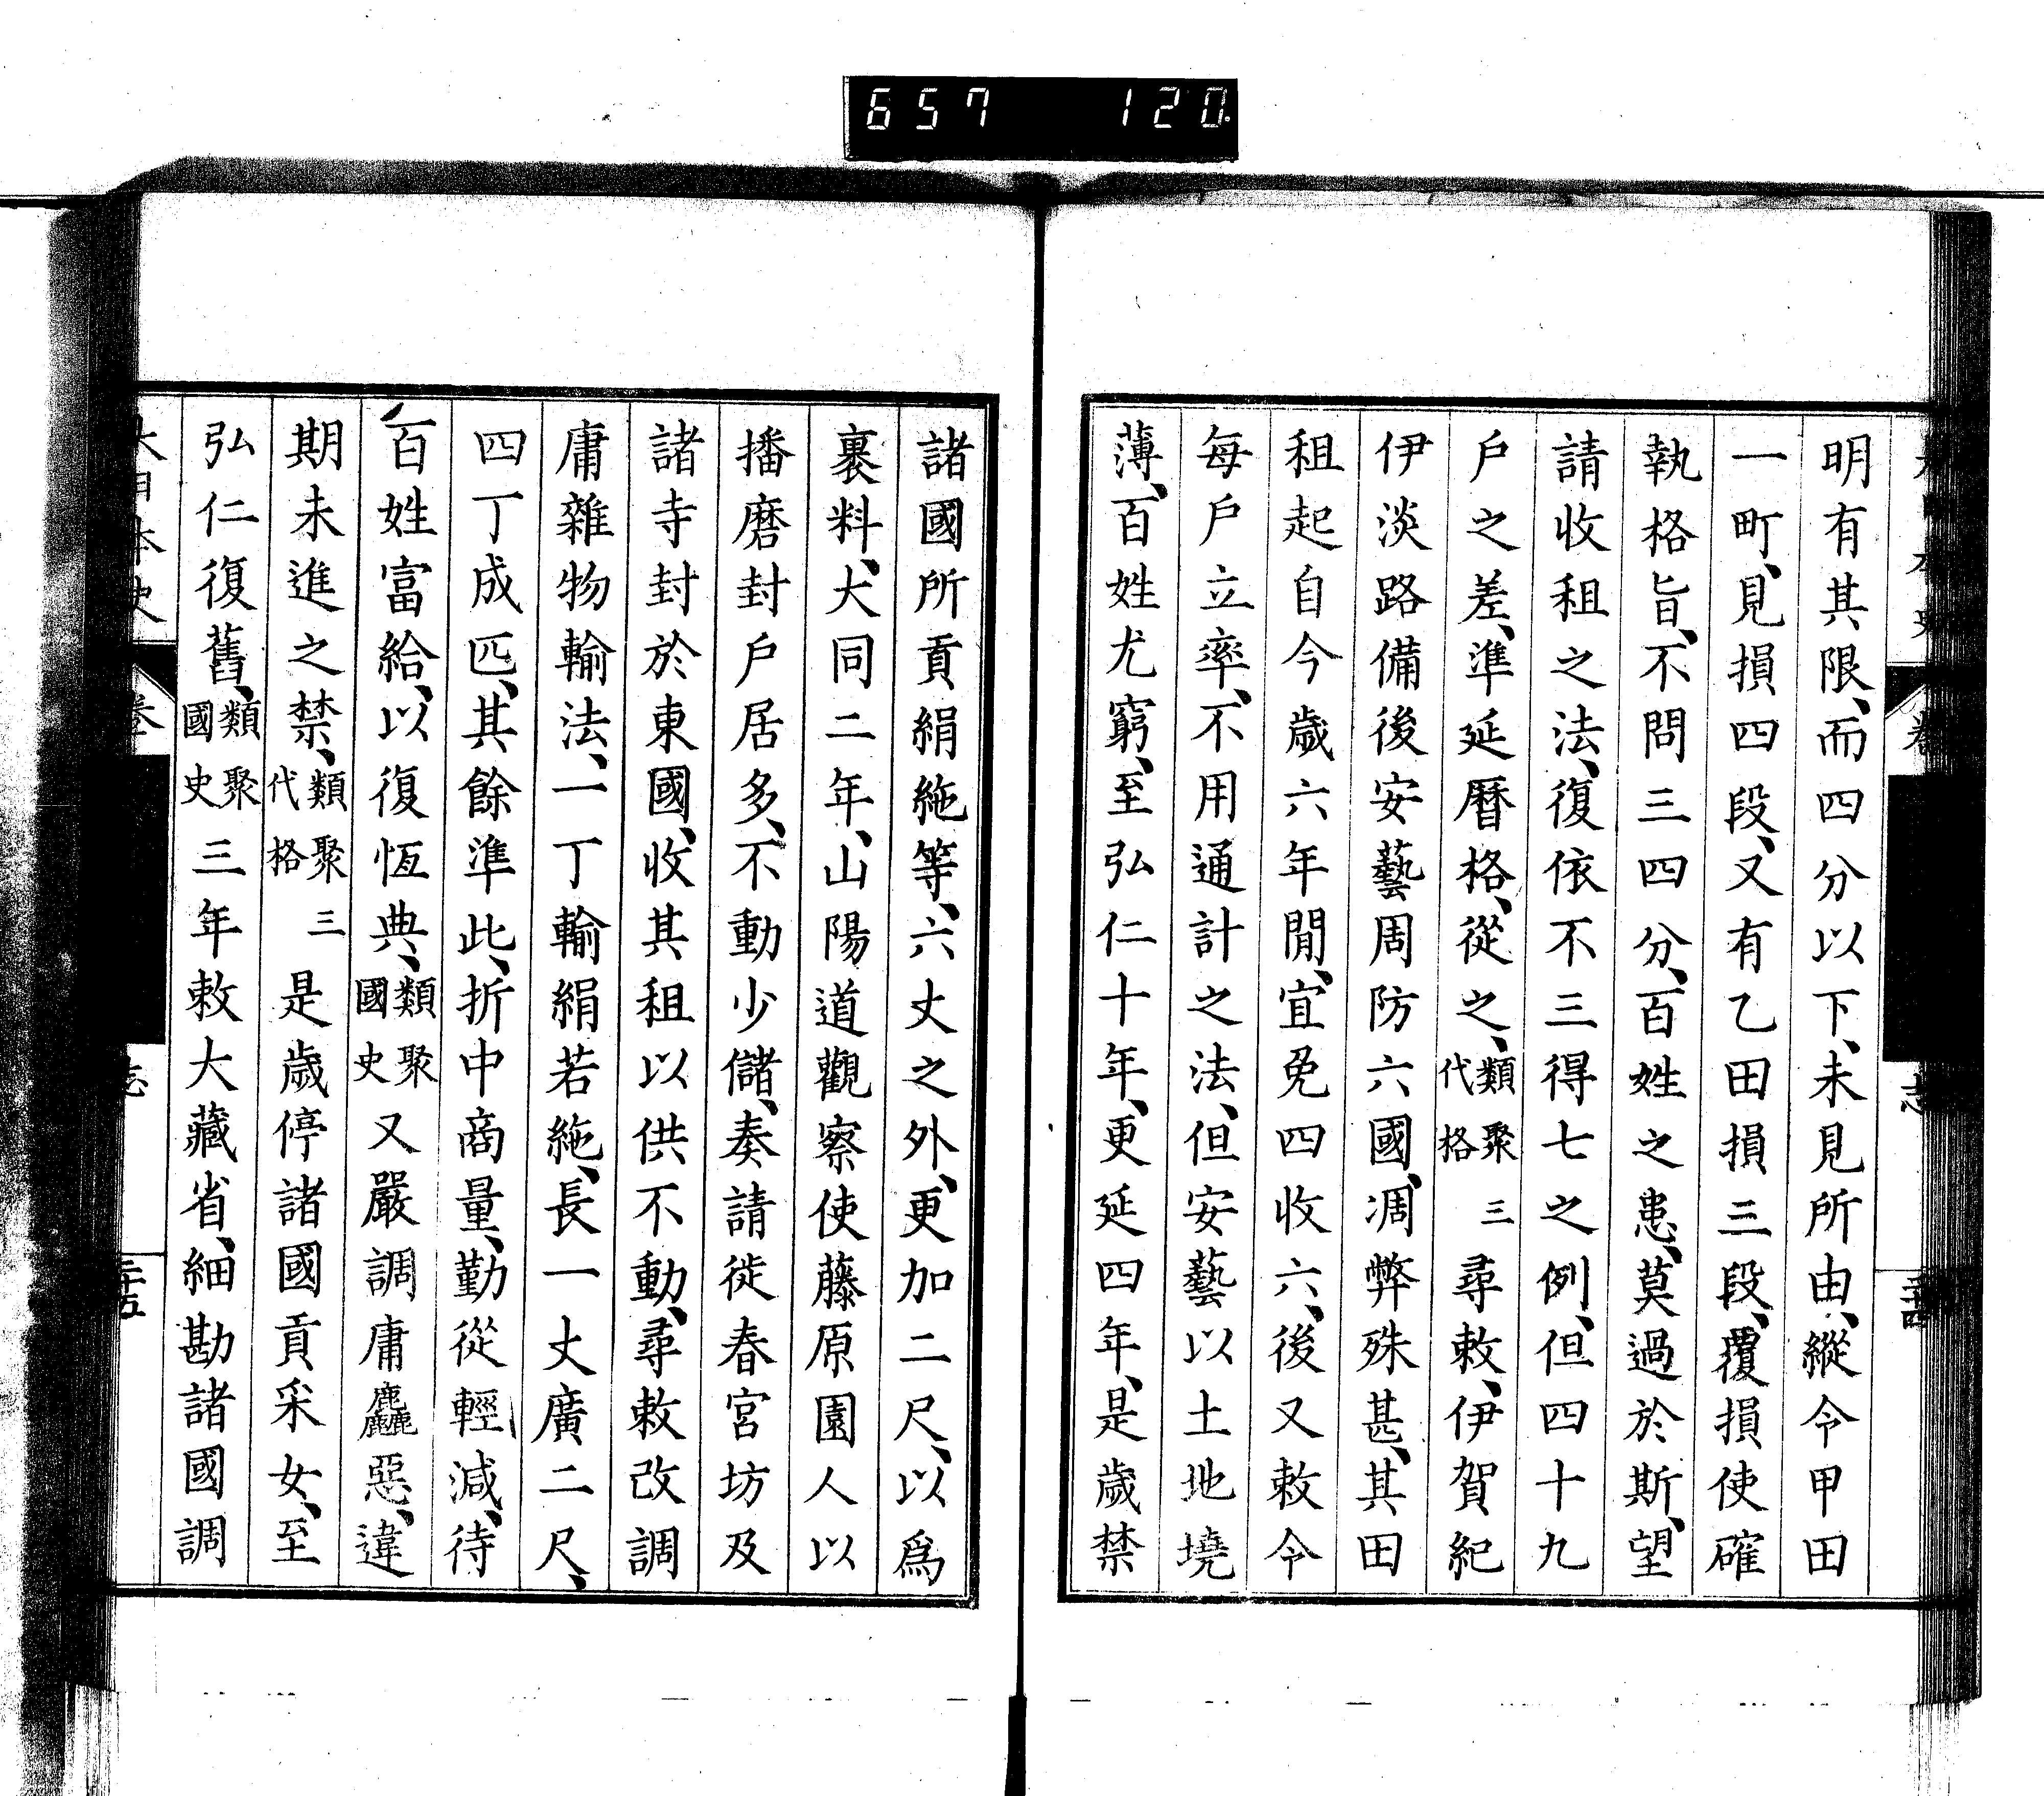 657 120
明有其限、而四分以下、未見所由、縱令甲田
一町、見損四段、又有乙田損三段、覆損使確
執格旨、不問三四分、百姓之患、莫過於斯、望
請收租之法、復依不三得七之例、但四十九
戶之差、準延曆格、從之、類聚三代格 尋敕、伊賀紀
伊淡路備後安藝周防六國、凋弊殊甚、其田
租起自今歲六年閒、宜免四收六、後又敕令
每戶立率、不用通計之法、但安藝以土地墝
薄、百姓尤窮、至弘仁十年、更延四年、是歲禁
諸國所貢絹絁等、六丈之外、更加二尺、以爲
裹料、大同二年、山陽道觀察使藤原園人以
播磨封戶居多、不動少儲、奏請徙春宮坊及
諸寺封於東國、收其租以供不動、尋敕改調
庸雜物輸法、一丁輸絹若絁、長一丈廣二尺、
四丁成匹、其餘準此、折中商量、勤從輕減、待
百姓富給、以復恆典、類聚國史 又嚴調庸麤惡、違
期未進之禁、類聚三代格 是歲停諸國貢采女、至
弘仁復舊、類聚國史 三年敕大藏省、細勘諸國調
大日本史 卷 志 二十五